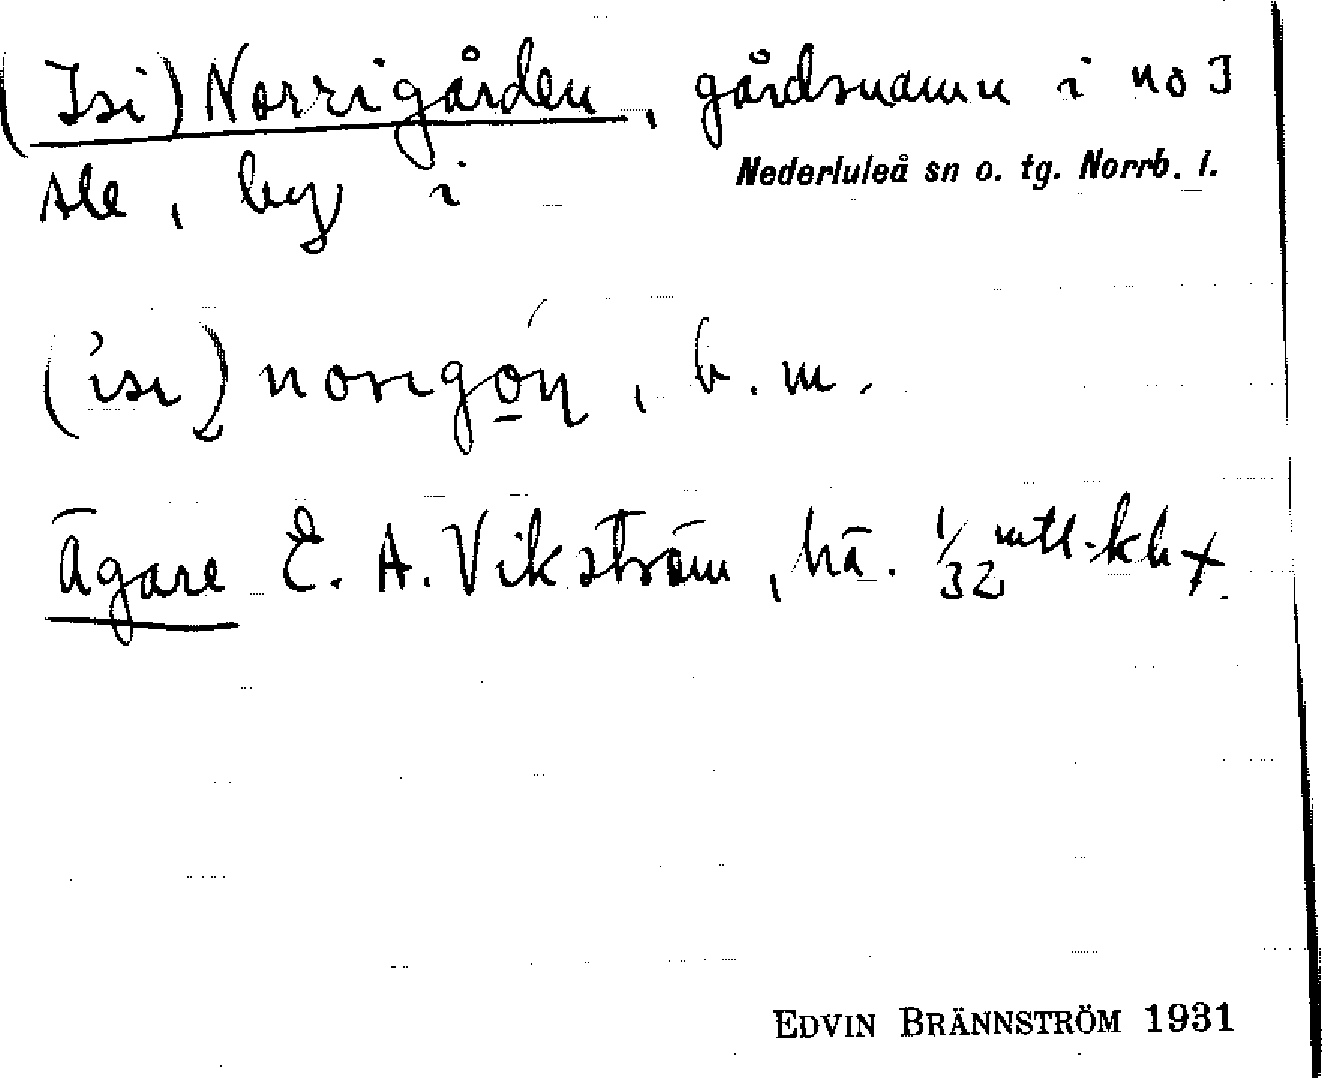 (Isi) Norrigården, gårdsnamn i no 3
Sle, by i Nederluleå sn o. tg. Norrb. l.
(isi) norigón, b. m.
Ägare E. A. Vikström, hä. 1/32 mtl kh +
EDVIN BRÄNNSTRÖM 1931